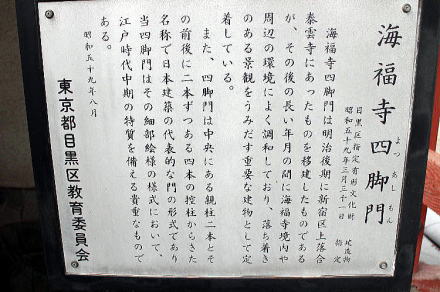 海福寺四脚門
よつあしもん
目黒区指定有形文化財
昭和五十九年三月三十一日 指定
建造物
海福寺四脚門は明治後期に新宿区上落合
泰雲寺にあったものを移建したものである
が、その後の長い年月の間に海福寺境内や
周辺の環境によく調和しており、落ち着き
のある景観をうみだす重要な建物として定
着している。
また、四脚門は中央にある親柱二本とそ
の前後に二本ずつある四本の控柱からきた
名称で日本建築の代表的な門の形式であり
当四脚門はその細部絵様の様式において、
江戸時代中期の特質を備える貴重なもので
ある。
昭和五十九年八月
東京都目黒区教育委員会